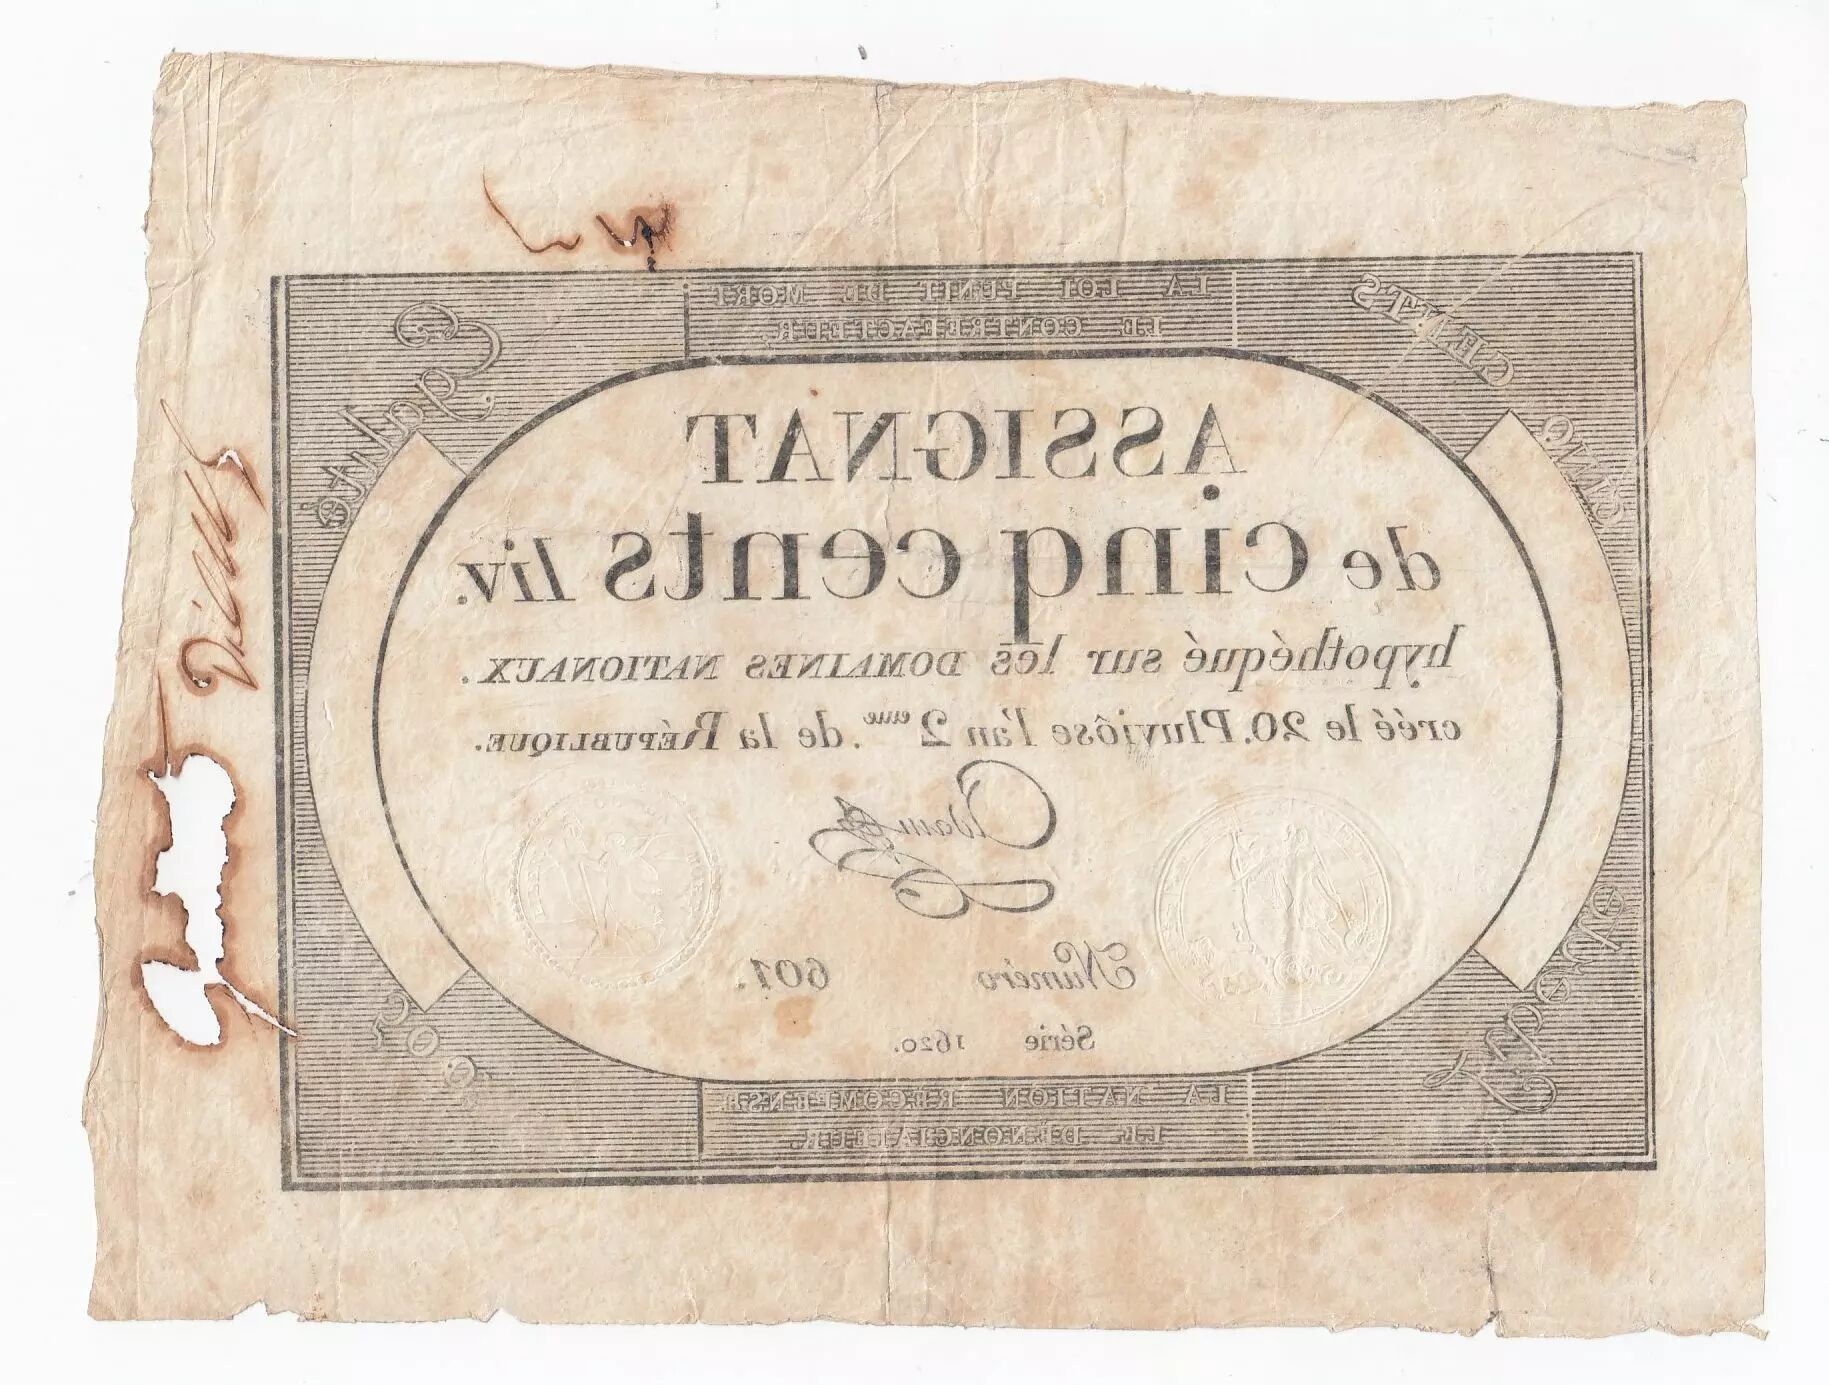 LA LOI PUNIT DE MORT
LE CONTREFACTEUR.
CINQ CENTS
Egalité
ASSIGNAT
de cinq cents liv.
hypothéqué sur les DOMAINES NATIONAUX.
créé le 20. Pluviôse l'an 2eme. de la RÉPUBLIQUE.
Numéro 601.
Série 1620.
LA NATION RÉCOMPENSE
LE DÉNONCIATEUR.